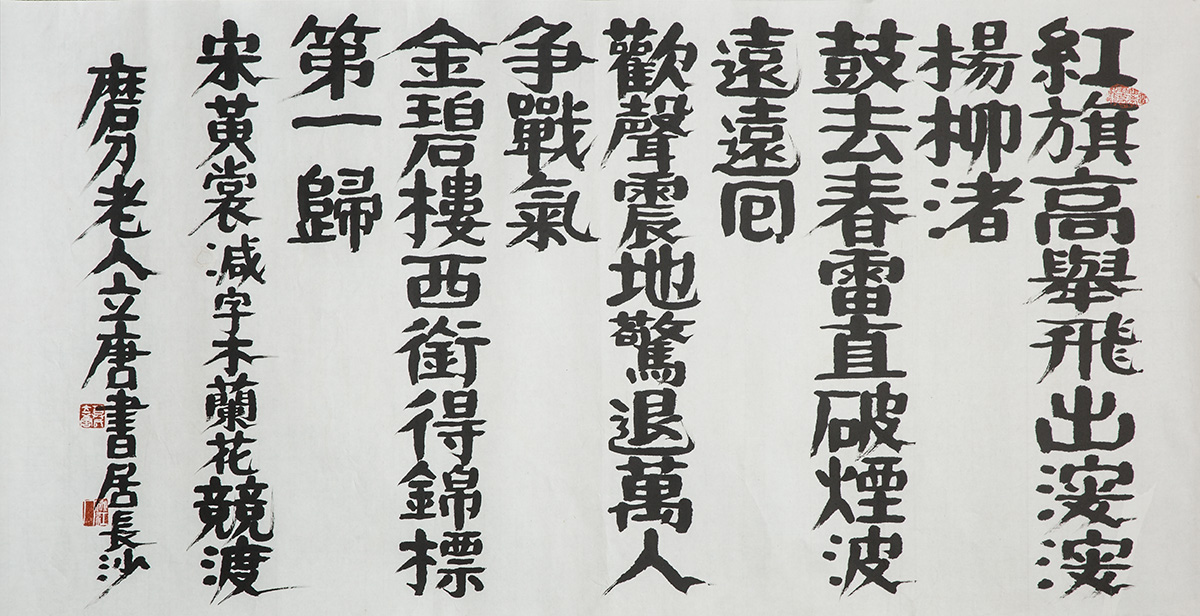 紅旗高舉飛出深深
楊柳渚
鼓去春雷直破煙波
遠遠回
歡聲震地驚退萬人
争戰氣
金碧樓西銜得錦標
第一歸
宋黃裳減字木蘭花競渡
磨刃老人立唐書居長沙